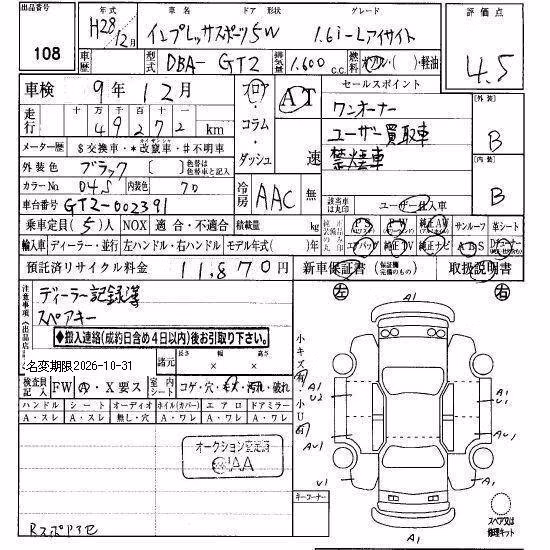 出品番号 108
年式 H28/12月 車名 インプレッサスポーツ 5W ドア 形状 グレード 1.6i-Lアイサイト 評価点 4.5
車歴 型式 DBA-GT2 排気量 1,600 c.c. 燃料 ガソリン・軽油
車検 9年12月 フロア・コラム・ダッシュ AT 速 セールスポイント
走行 十万千百十一 49272 km ワンオーナー 外装 B
メーター歴 $交換車・*改竄車・#不明車 ユーザー買取車
外装色 ブラック 色替は色替車と記入 禁煙車 内装 B
カラーNo 04S 内装色 70 冷房 AAC 無
車台番号 GT2-002391 該当車は丸印 ユーザー買入車
乗車定員(5)人 NOX 適合・不適合 積載量 kg PS PW 純正AW サンルーフ 革シート
輸入車 ディーラー・並行 左ハンドル・右ハンドル モデル年式( )年 エアバッグ 純正TV 純正ナビ ABS
預託済リサイクル料金 11,870円 新車保証書(保証継続に完備のもの) 取扱説明書
注意事項(出品店) ディーラー記録簿 左 A1 右
スペアキー
◆搬入連絡(成約日含め4日以内)後お引取り下さい。
名変期限2026-10-31 諸元 長さ × 幅 × 高さ 小キズ有・小U有
検査員記入 FW Ⓐ・X要ス 室内シート コゲ・穴・キズ・汚れ・破れ A1 U2 A1 U1
ハンドル シート オーディオ ホイル(カバー) エアロ ドアミラー
A・スレ A・スレ 無し・穴 A・ワレ A・ワレ A・ワレ AU1 AU1
オークション査定済 JAA U1 A1
キーナンバー
Rスポアイモ A1 スペア又は修理キット